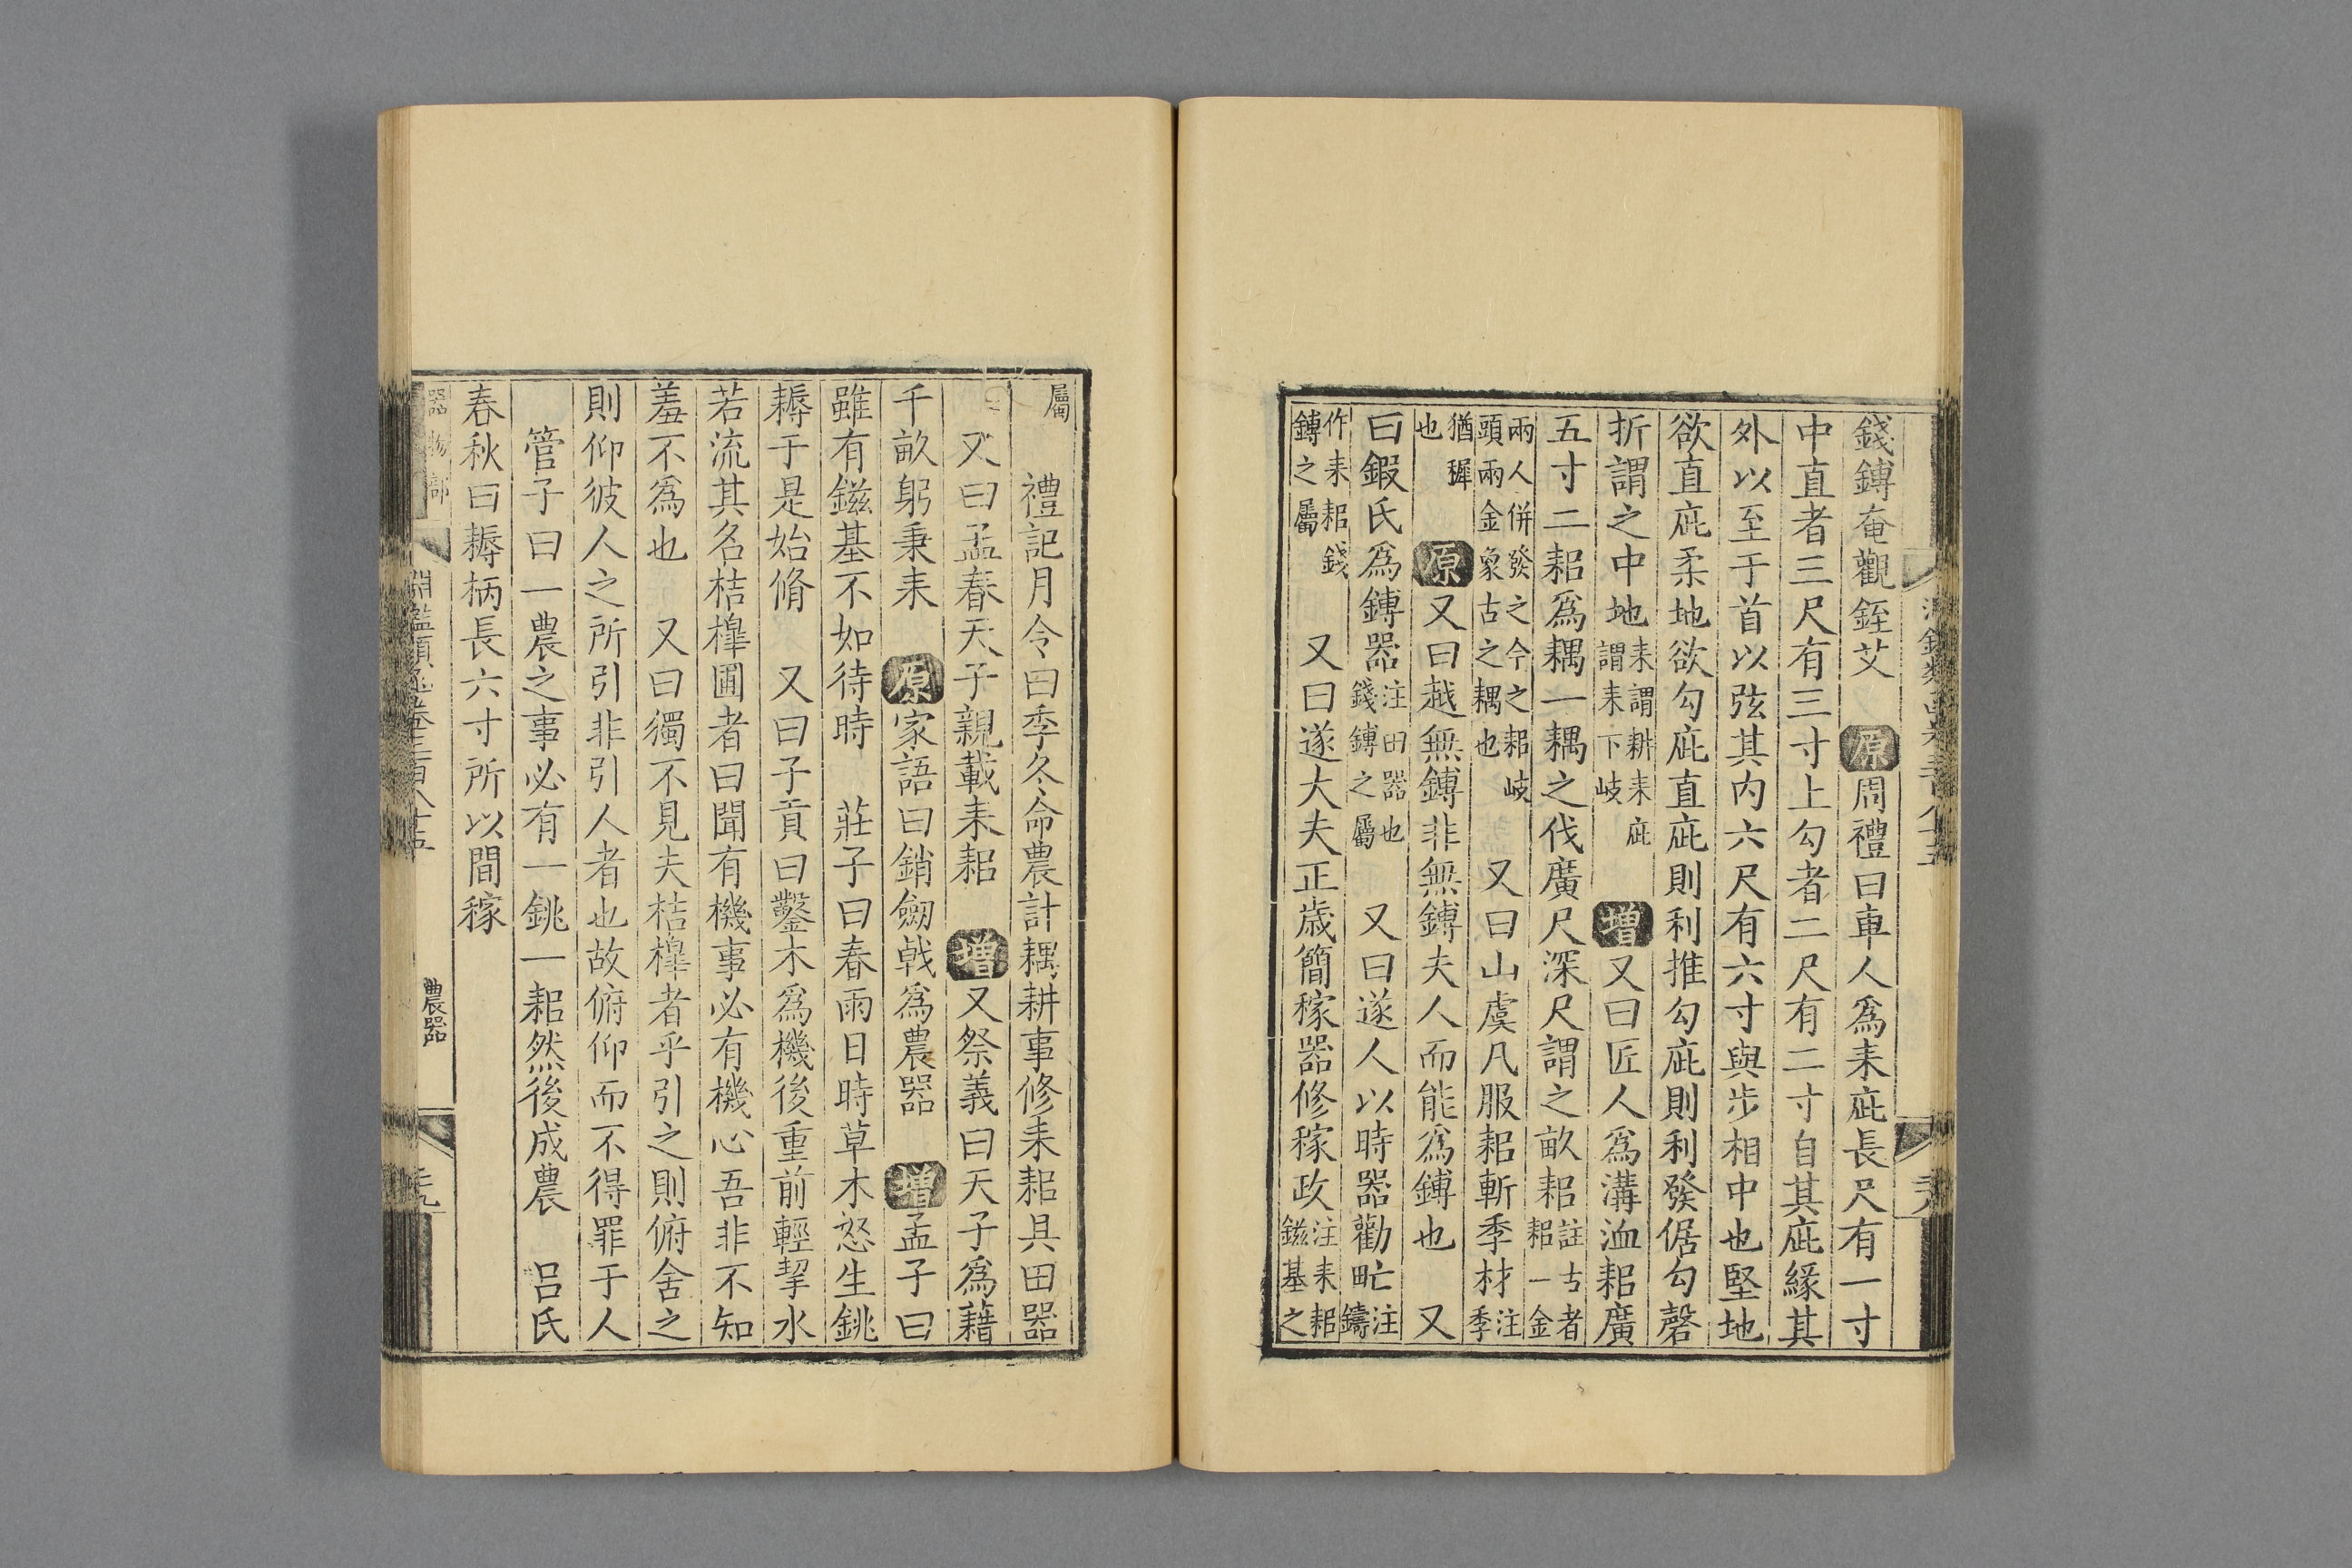 錢鎛奄觀銍艾 原周禮曰車人爲耒庛長尺有一寸
中直者三尺有三寸上勾者二尺有二寸自其庛緣其
外以至于首以弦其内六尺有六寸與步相中也堅地
欲直庛柔地欲勾庛直庛則利推勾庛則利發倨勾磬
折謂之中地耒謂耕耒庛謂耒下岐 增又曰匠人爲溝洫耜廣
五寸二耜爲耦一耦之伐廣尺深尺謂之畝耜註古者耜一金
兩人併發之今之耜岐頭兩金象古之耦也 又曰山虞凡服耜斬季材注季
猶穉也 原又曰越無鎛非無鎛夫人而能爲鎛也 又
曰鍜氏爲鎛器注田器也錢鎛之屬 又曰遂人以時器勸甿注鑄
作耒耜錢鎛之屬 又曰遂大夫正歲簡稼器修稼政注耒耜鎡基之
屬 禮記月令曰季冬命農計耦耕事修耒耜具田器
又曰孟春天子親載耒耜 增又祭義曰天子爲藉
千畝躬秉耒 原家語曰銷劒戟爲農器 增孟子曰
雖有鎡基不如待時 莊子曰春雨日時草木怒生銚
耨于是始脩 又曰子貢曰鑿木爲機後重前輕挈水
若流其名桔槹圃者曰聞有機事必有機心吾非不知
羞不爲也 又曰獨不見夫桔槹者乎引之則俯舍之
則仰彼人之所引非引人者也故俯仰而不得罪于人
管子曰一農之事必有一銚一耜然後成農 呂氏
春秋曰耨柄長六寸所以間稼
器物部 淵鑑類函卷三百八十五 農器